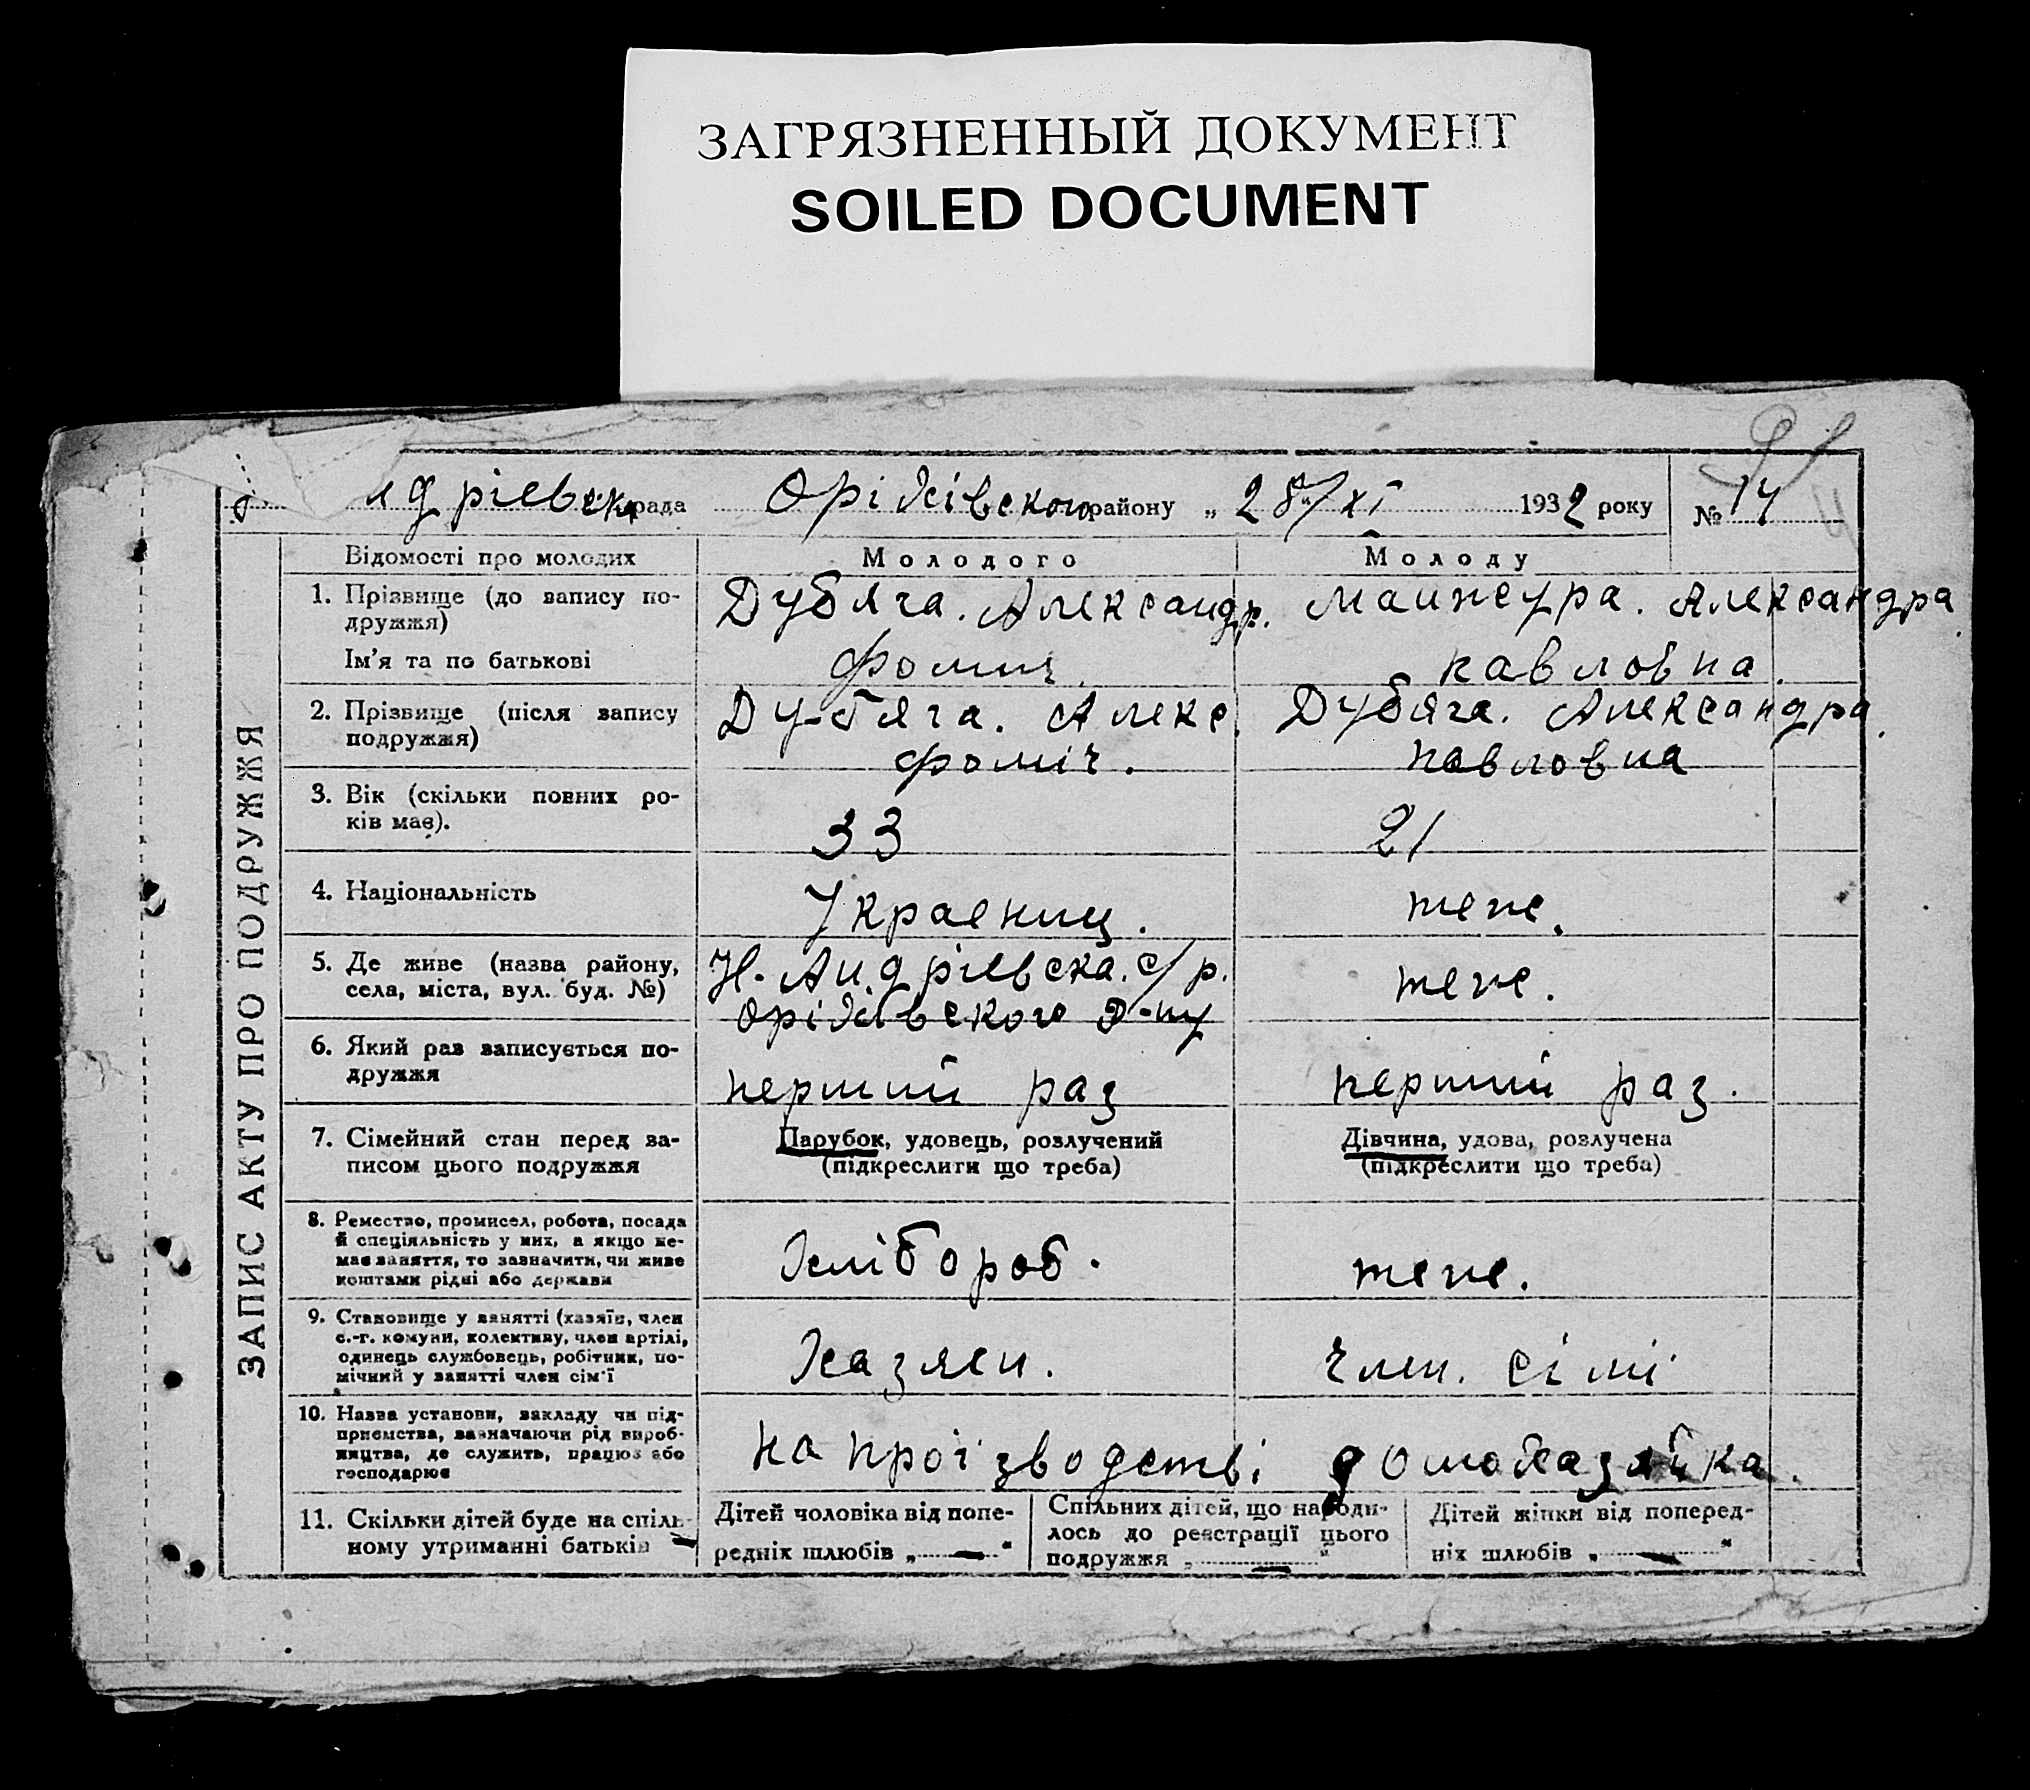 ЗАГРЯЗНЕННЫЙ ДОКУМЕНТ
SOILED DOCUMENT
дрієвска рада Оріхівского району „ 28/XI 1932 року № 14
ЗАПИС АКТУ ПРО ПОДРУЖЖЯ
Відомості про молодих Молодого Молоду
1. Прізвище (до запису по- Дубяга. Александр. Александра
дружжя)
Ім'я та по батькові Фомич. Павловна.
2. Прізвище (після запису Дубяга. Алекс. Дубяга. Александра.
подружжя) Фоміч. Павловна
3. Вік (скільки повних ро-
ків має). 33 21
4. Національність Украениц. теже.
5. Де живе (назва району, Н. Андрієвска. с/р. теже.
села, міста, вул. буд. №) Оріхівского Р-ну
6. Який раз записується по-
дружжя перший раз перший раз.
7. Сімейний стан перед за- Парубок, удовець, розлучений Дівчина, удова, розлучена
писом цього подружжя (підкреслити що треба) (підкреслити що треба)
8. Ремество, промисел, робота, посада
й спеціяльність у них, а якщо не-
має заняття, то зазначити, чи живе Хлібороб. теже.
коштами рідні або держави
9. Становище у занятті (хазяїн, член
с.-г. комуни, колективу, член артілі,
одинець службовець, робітник, по- Хазяен. Член. сімі
мічний у занятті член сім'ї
10. Назва установи, закладу чи під-
приємства, зазначаючи рід вироб-
ництва, де служить, працює або на проізводстві домохазяйка.
господарює
11. Скільки дітей буде на спіль- Дітей чоловіка від попе- Спільних дітей, що народи- Дітей жінки від поперед-
ному утриманні батьків — редніх шлюбів „ — “ лось до реєстрації цього ніх шлюбів „ — “
подружжя „ — “